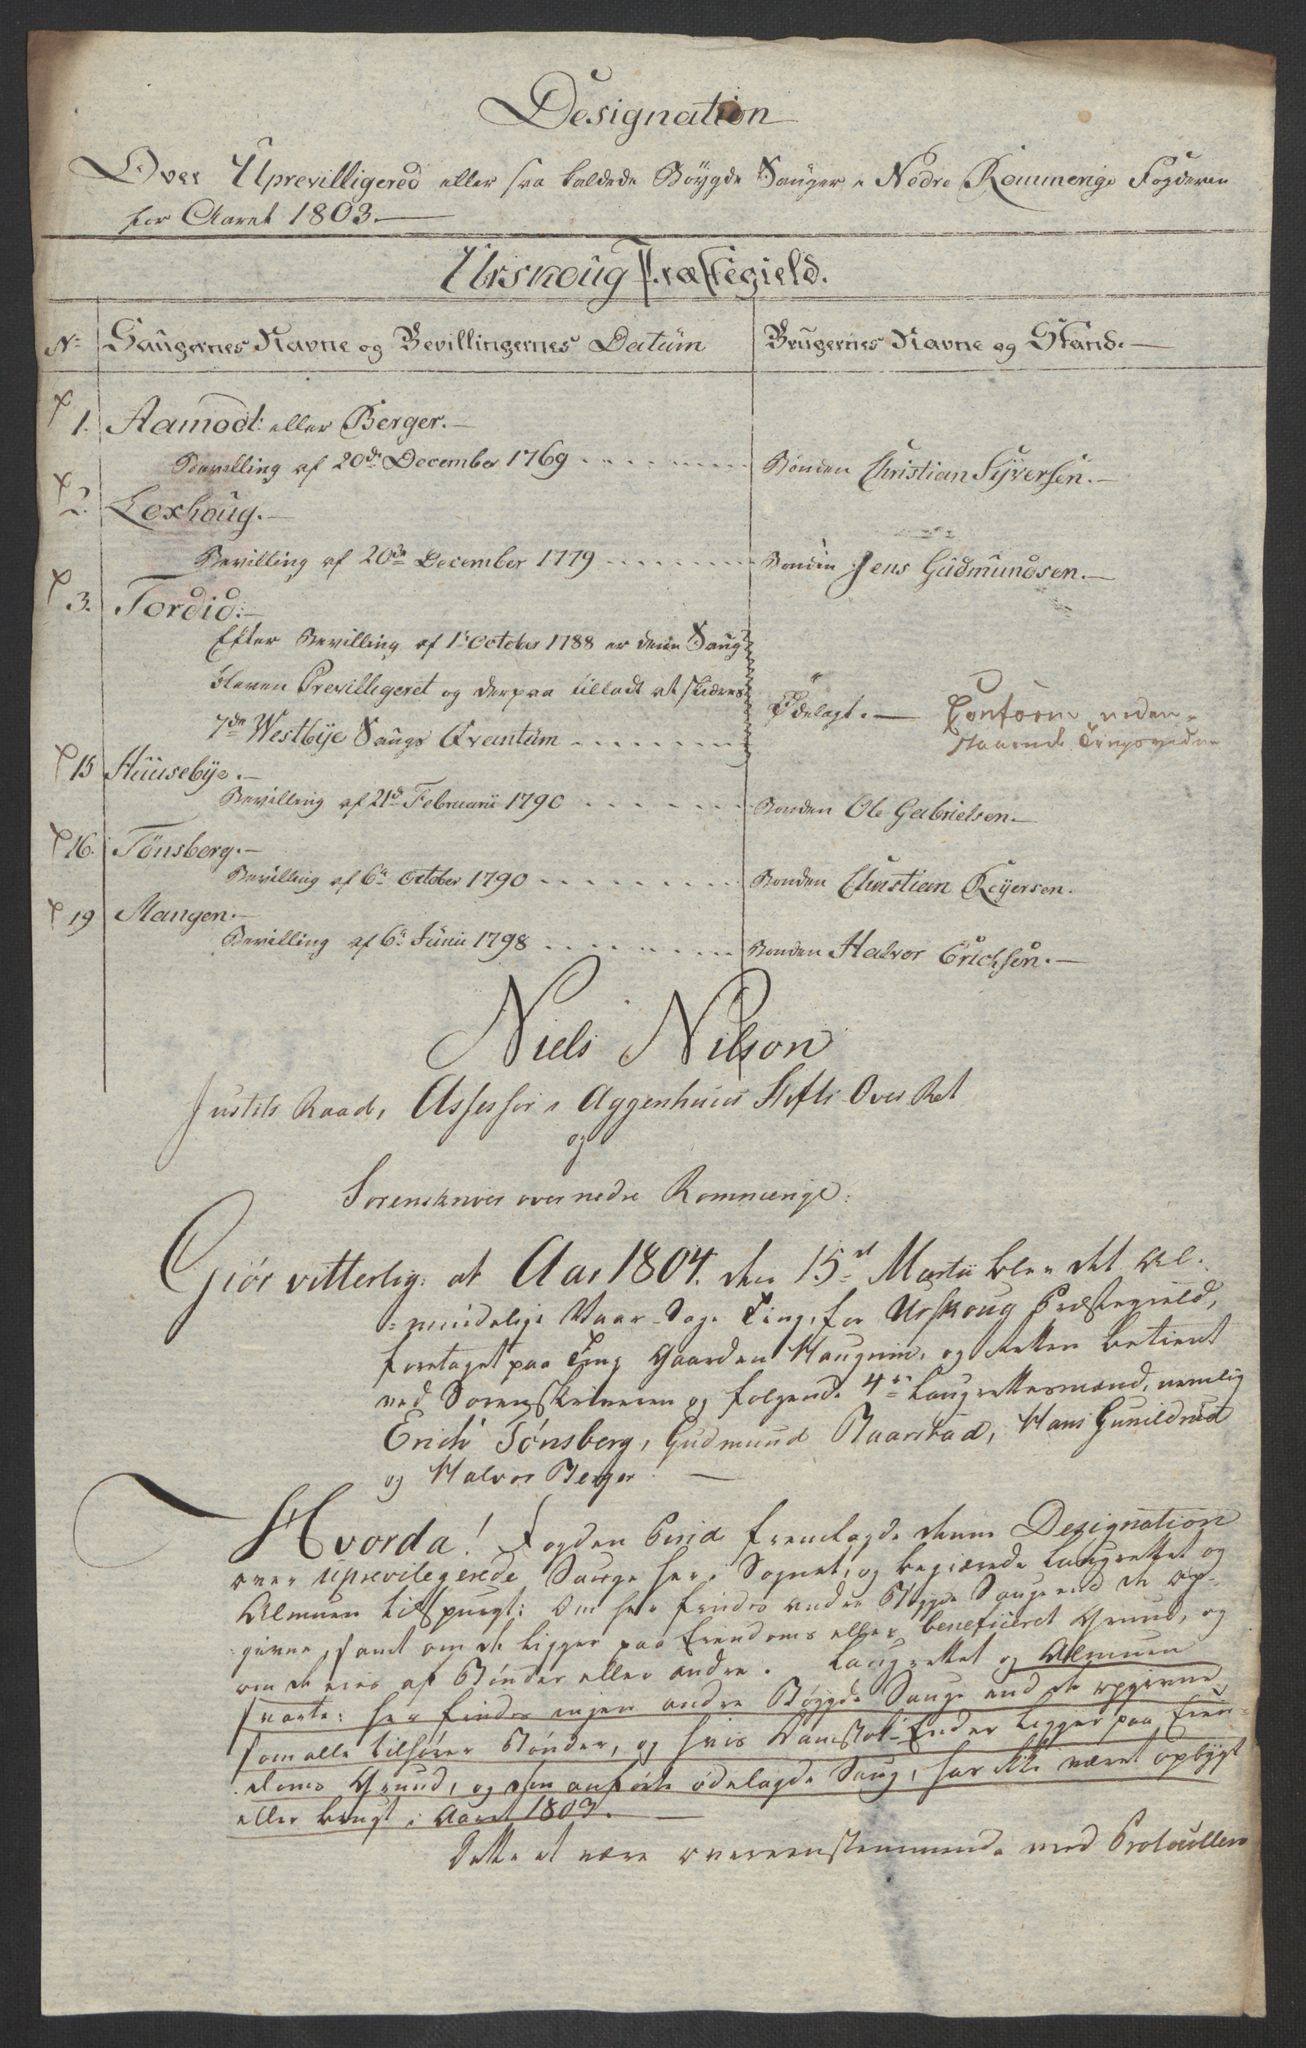 Designation
Over Uprevilligered eller saa kaldede Böygde Sauger i Nedre Rommerige Fogderie
for Aaret 1803.
Urskoug Præstegield.
No Saugernes Navne og Bevillingernes Datum Brugernes Navne og Stand.
1. Aamodt eller Berger.
Bevilling af 20de December 1769 Bonden Christian Syversen.
2. Loxhoug.
Bevilling af 20de December 1779 Bonden Jens Gudmundsen.
3. Tordid.
Efter Bevilling af 1te October 1788 er denne Saug
bleven Previlligeret og derpaa tilladt at skiæres
7de Westbye Saugs Qvantum Ödelagt. Conform neden-
staaende Tingsvidne
15 Huusebye.
Bevilling af 21de Februarii 1790 Bonden Ole Gabrielsen.
16. Tönsberg.
Bevilling af 6te October 1790 Bonden Christian Reyersen.
19 Mangen.
Bevilling af 6te Junii 1798 Bonden Halvor Erichsen.
Niels Nilson
Justits Raad, Assessor i Aggerhuus Stifts Over Ret
og
Sorenskriver over nedre Rommerige:
Giör vitterlig: at Aar 1804. den 15de Martii blev det al-
mindelige Vaar-Sage Ting for Urskoug Præstegield,
foretaget paa Ting Gaarden Haugnim, og Retten betient
ved Sorenskriveren og følgende 4re Laugrettesmænd, nemlig
Erich Tönsberg, Gudmund Raarstad, Hans Gunildrud
og Halvor Berger.
Hvorda! Fogden Pind fremlagde denne Designation
over uprevilegerede Sauge her i Sognet, og begiærede Laugrettet og
Almuen tilspurgt: Om her findes andre Bögde Sauge end de op-
givne, samt om de ligger paa Eiendoms eller beneficeret Grund, og
om de eies af Bönder eller andre. Laugrettet og Almuen
svarte: her findes ingen andre Böygde Sauge end de opgivne,
som alle tilhører Bönder, og hvis Damstok-Ender ligger paa Eien-
doms Grund, og den anførte ödelagde Saug, har ikke været opbygt
eller brugt i Aaret 1803.
Dette at være overeenstemmende med Protocullen